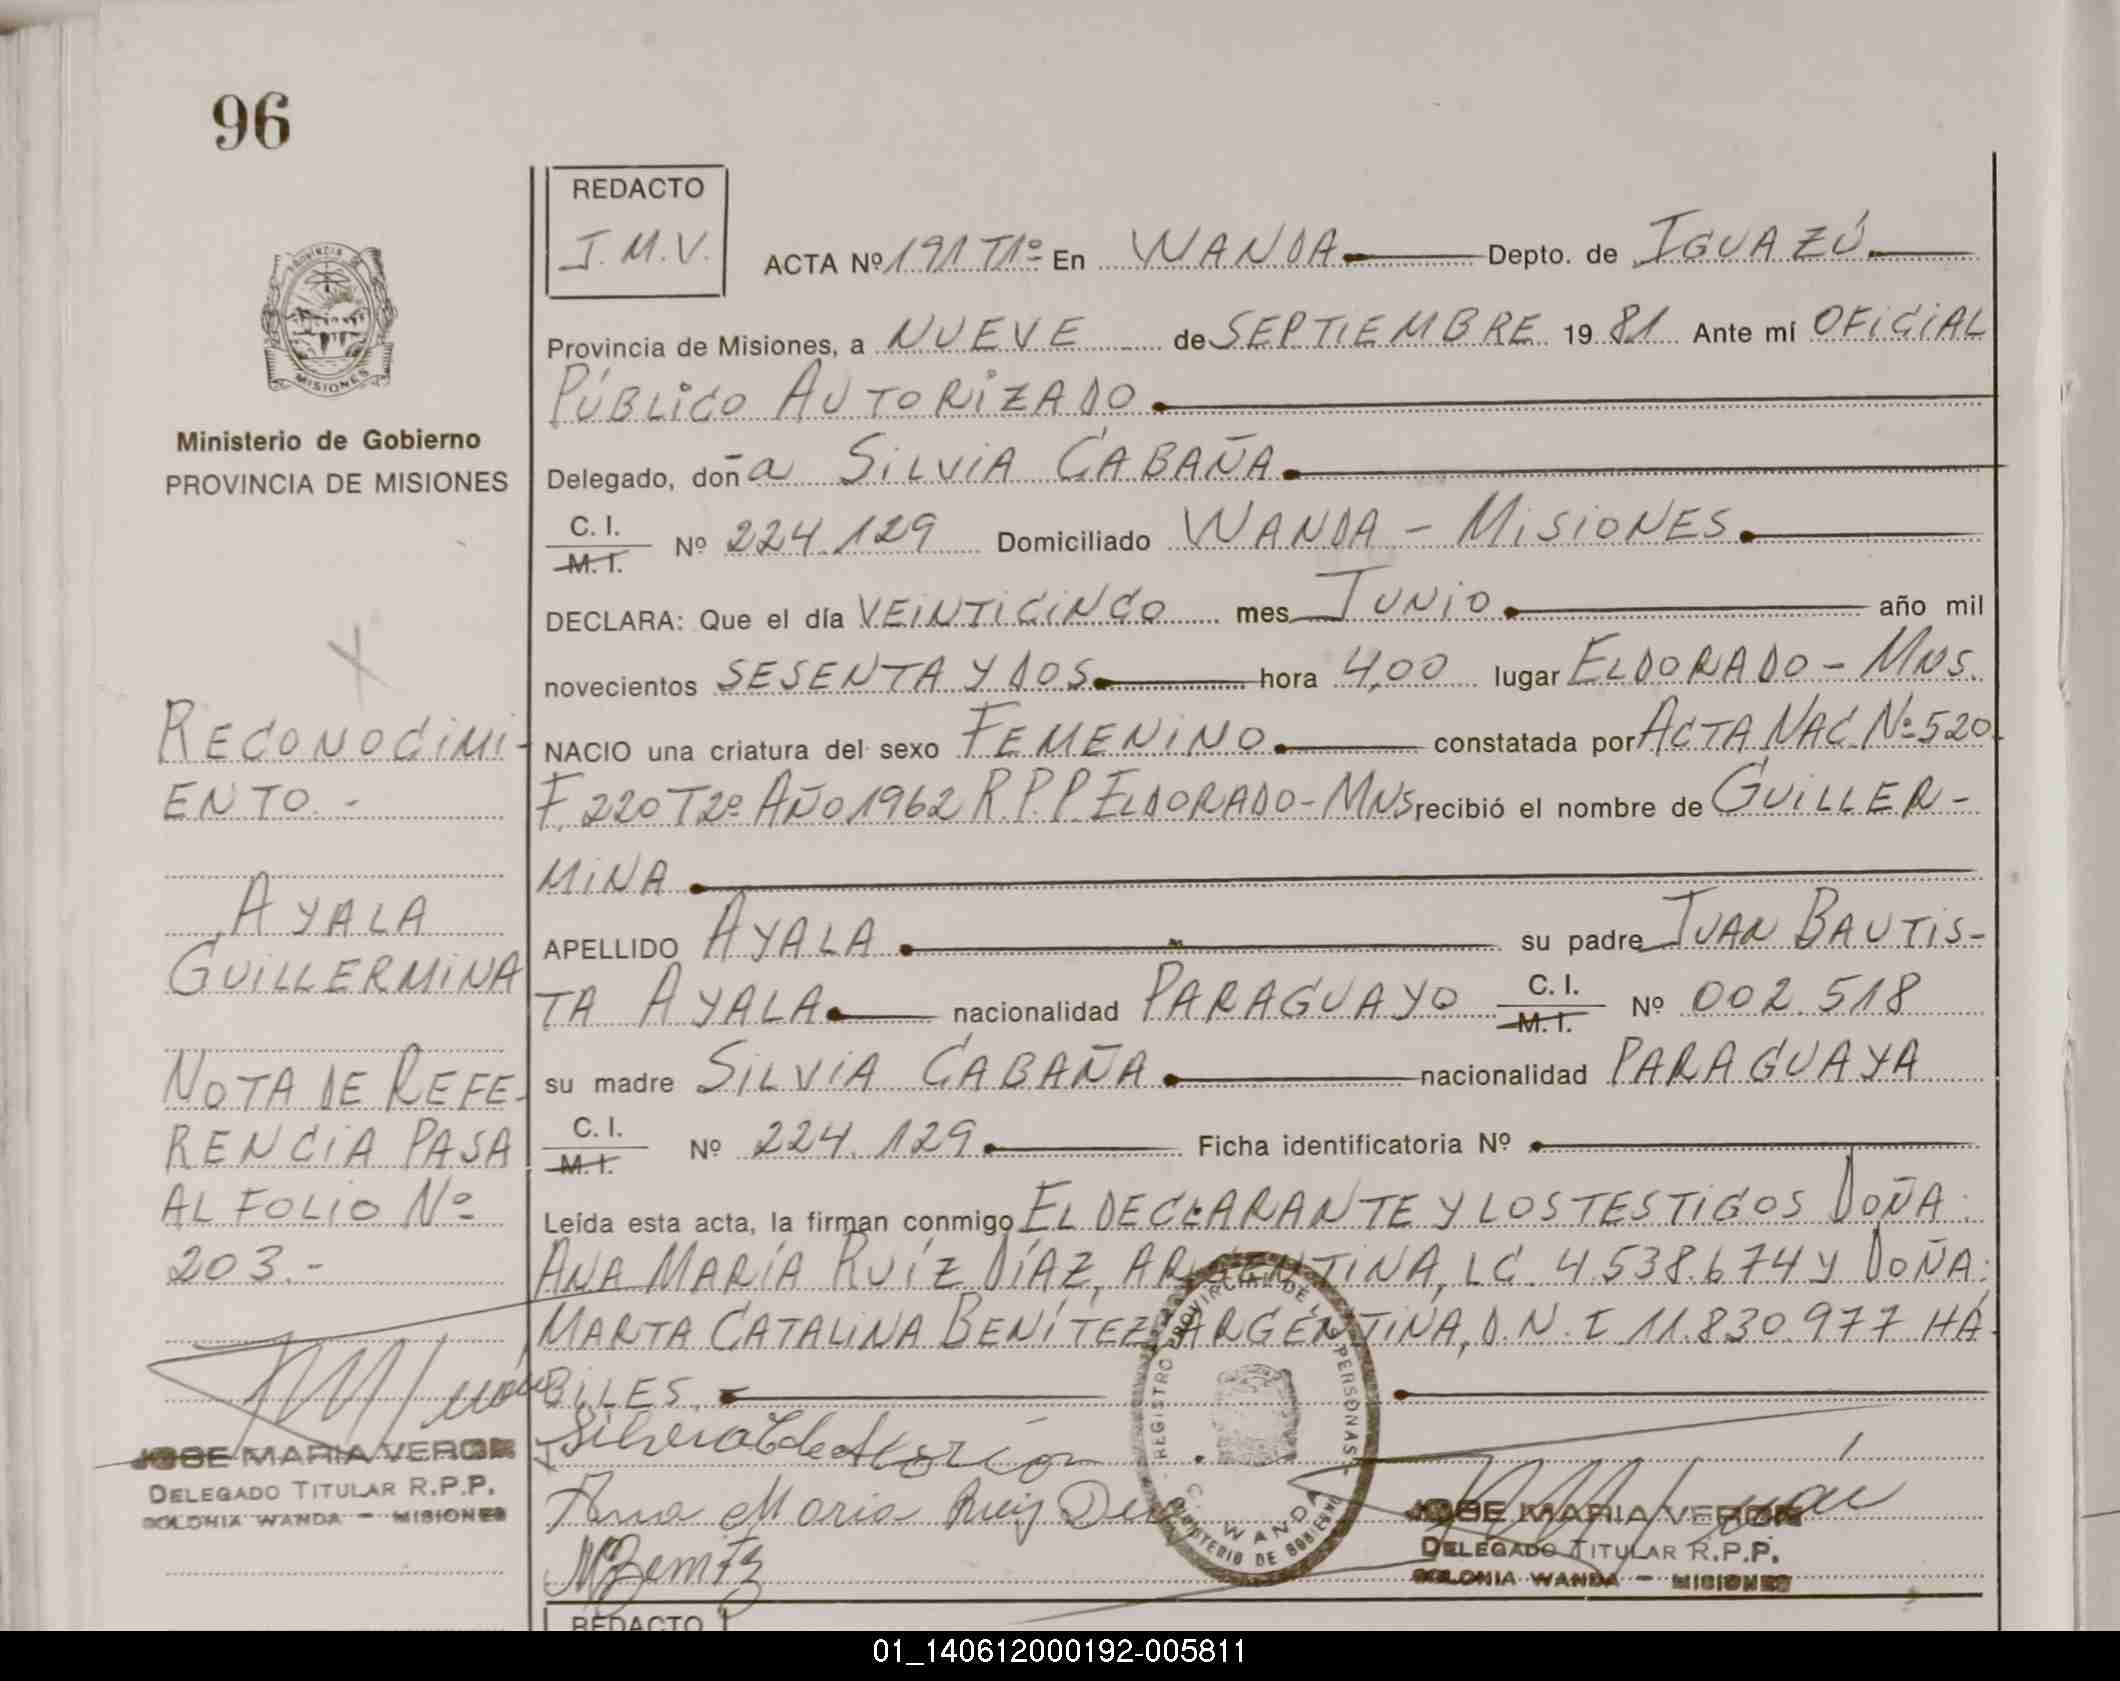 96
PROVINCIA DE
MISIONES
Ministerio de Gobierno
PROVINCIA DE MISIONES
RECONOCIMI-
ENTO.-
AYALA
GUILLERMINA
NOTA DE REFE-
RENCIA PASA
AL FOLIO Nº
203.-
JOSE MARIA VERON
DELEGADO TITULAR R.P.P.
COLONIA WANDA - MISIONES
REDACTO
J.M.V.
ACTA Nº 191 T1º En WANDA Depto. de IGUAZÚ
Provincia de Misiones, a NUEVE de SEPTIEMBRE 1981 Ante mí OFICIAL
PÚBLICO AUTORIZADO
Delegado, doña SILVIA CABAÑA
C. I.
M. I. Nº 224.129 Domiciliado WANDA - MISIONES
DECLARA: Que el día VEINTICINCO mes JUNIO año mil
novecientos SESENTA Y DOS hora 4,00 lugar ELDORADO - MNS.
NACIO una criatura del sexo FEMENINO constatada por ACTA NAC. Nº 520
F. 220 T2º AÑO 1962 R.P.P. ELDORADO - MNS recibió el nombre de GUILLER-
MINA
APELLIDO AYALA su padre JUAN BAUTIS-
TA AYALA nacionalidad PARAGUAYO C. I.
M. I. Nº 002.518
su madre SILVIA CABAÑA nacionalidad PARAGUAYA
C. I.
M. I. Nº 224.129 Ficha identificatoria Nº
Leída esta acta, la firman conmigo EL DECLARANTE Y LOS TESTIGOS DOÑA:
ANA MARÍA RUÍZ DÍAZ, ARGENTINA, LC. 4.538.674 Y DOÑA:
MARTA CATALINA BENÍTEZ ARGENTINA, D.N.I 11.830.977 HÁ-
BILES.
Ana Maria Ruiz
MBenitz
REGISTRO PROVINCIAL DE LAS PERSONAS
WANDA
MINISTERIO DE GOBIERNO
JOSE MARIA VERON
DELEGADO TITULAR R.P.P.
COLONIA WANDA - MISIONES
REDACTO
01_140612000192-005811